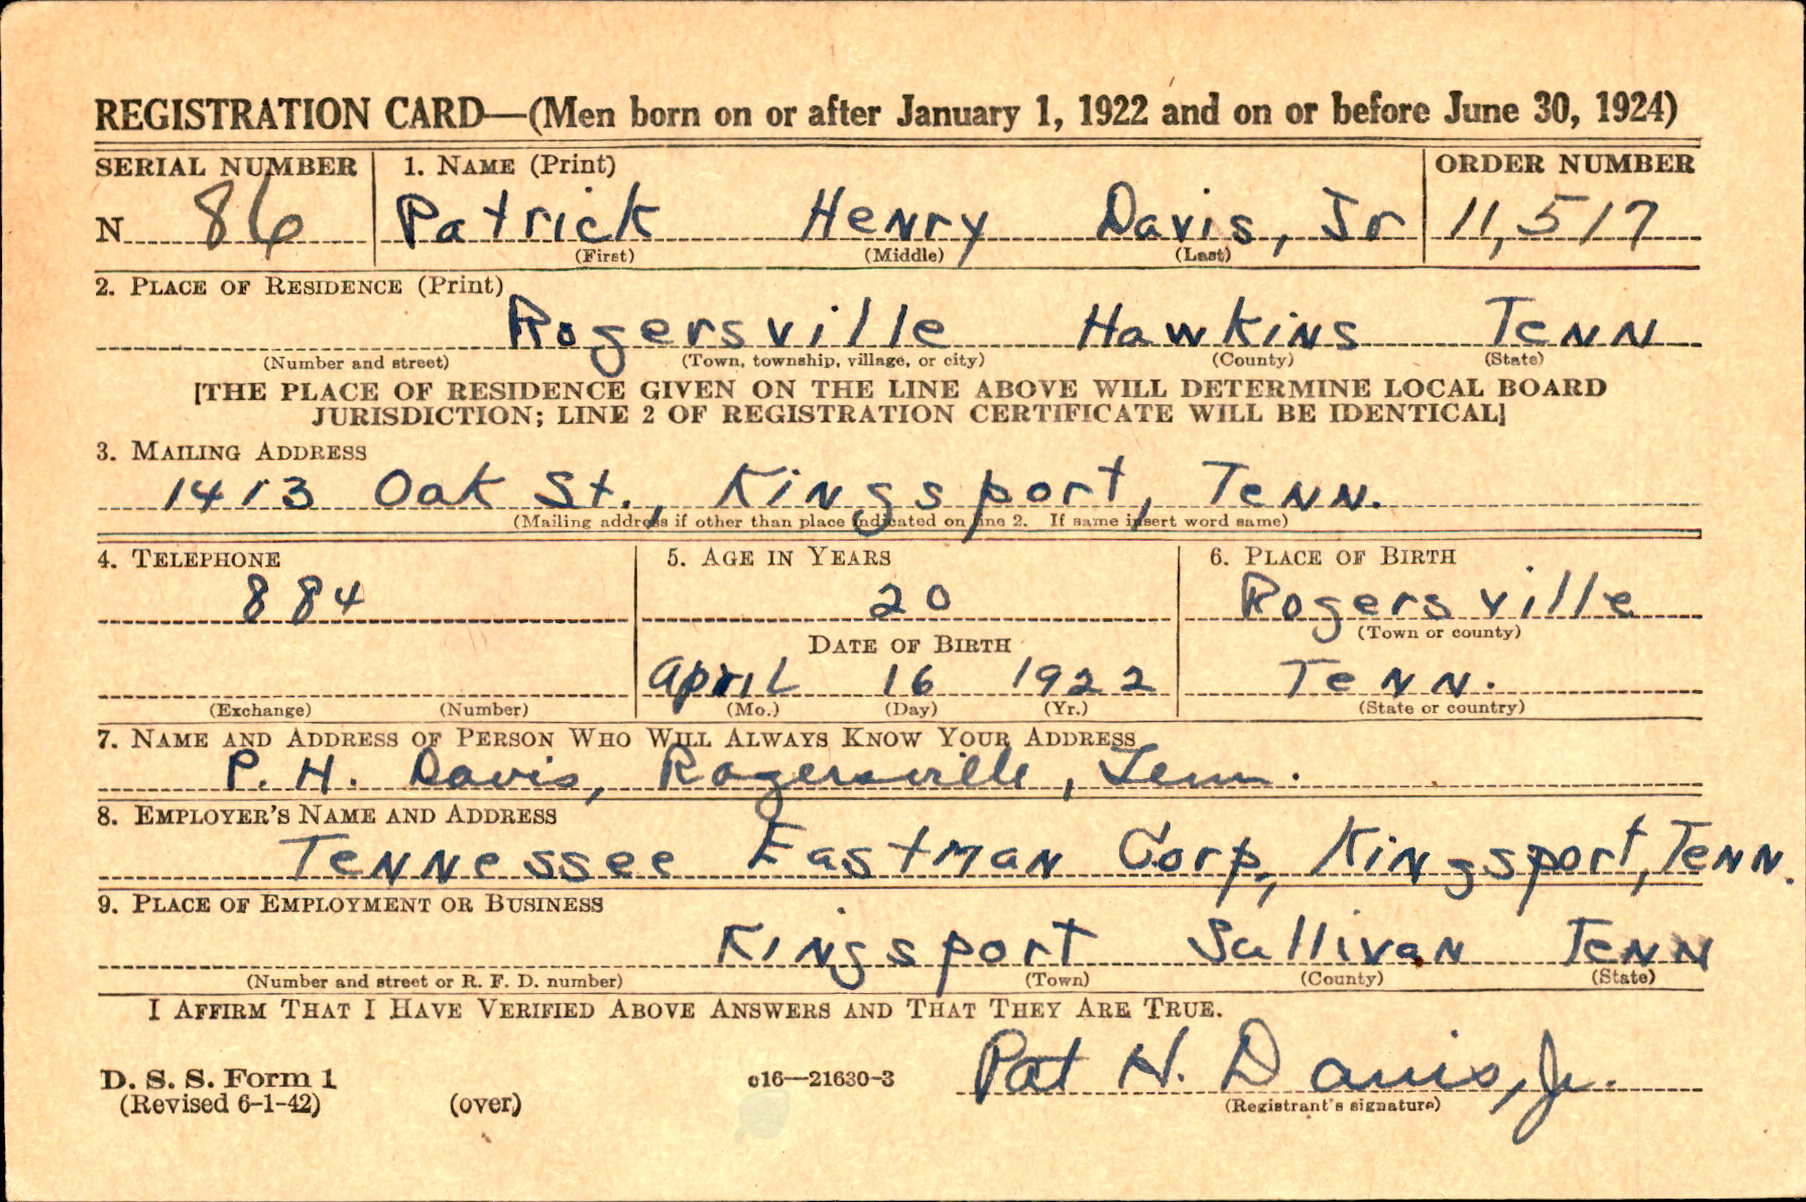 REGISTRATION CARD—(Men born on or after January 1, 1922 and on or before June 30, 1924)
SERIAL NUMBER 1. NAME (Print) ORDER NUMBER
N 86 Patrick Henry Davis, Jr 11,517
(First) (Middle) (Last)
2. PLACE OF RESIDENCE (Print)
Rogersville Hawkins Tenn
(Number and street) (Town, township, village, or city) (County) (State)
[THE PLACE OF RESIDENCE GIVEN ON THE LINE ABOVE WILL DETERMINE LOCAL BOARD
JURISDICTION; LINE 2 OF REGISTRATION CERTIFICATE WILL BE IDENTICAL]
3. MAILING ADDRESS
1413 Oak St., Kingsport, Tenn.
(Mailing address if other than place indicated on line 2. If same insert word same)
4. TELEPHONE 5. AGE IN YEARS 6. PLACE OF BIRTH
884 20 Rogersville
DATE OF BIRTH (Town or county)
April 16 1922 Tenn.
(Exchange) (Number) (Mo.) (Day) (Yr.) (State or country)
7. NAME AND ADDRESS OF PERSON WHO WILL ALWAYS KNOW YOUR ADDRESS
P. H. Davis, Rogersville, Tenn.
8. EMPLOYER'S NAME AND ADDRESS
Tennessee Eastman Corp., Kingsport, Tenn.
9. PLACE OF EMPLOYMENT OR BUSINESS
Kingsport Sullivan Tenn
(Number and street or R. F. D. number) (Town) (County) (State)
I AFFIRM THAT I HAVE VERIFIED ABOVE ANSWERS AND THAT THEY ARE TRUE.
Pat H. Davis, Jr.
D. S. S. Form 1 c16—21630-3
(Revised 6-1-42) (over) (Registrant's signature)